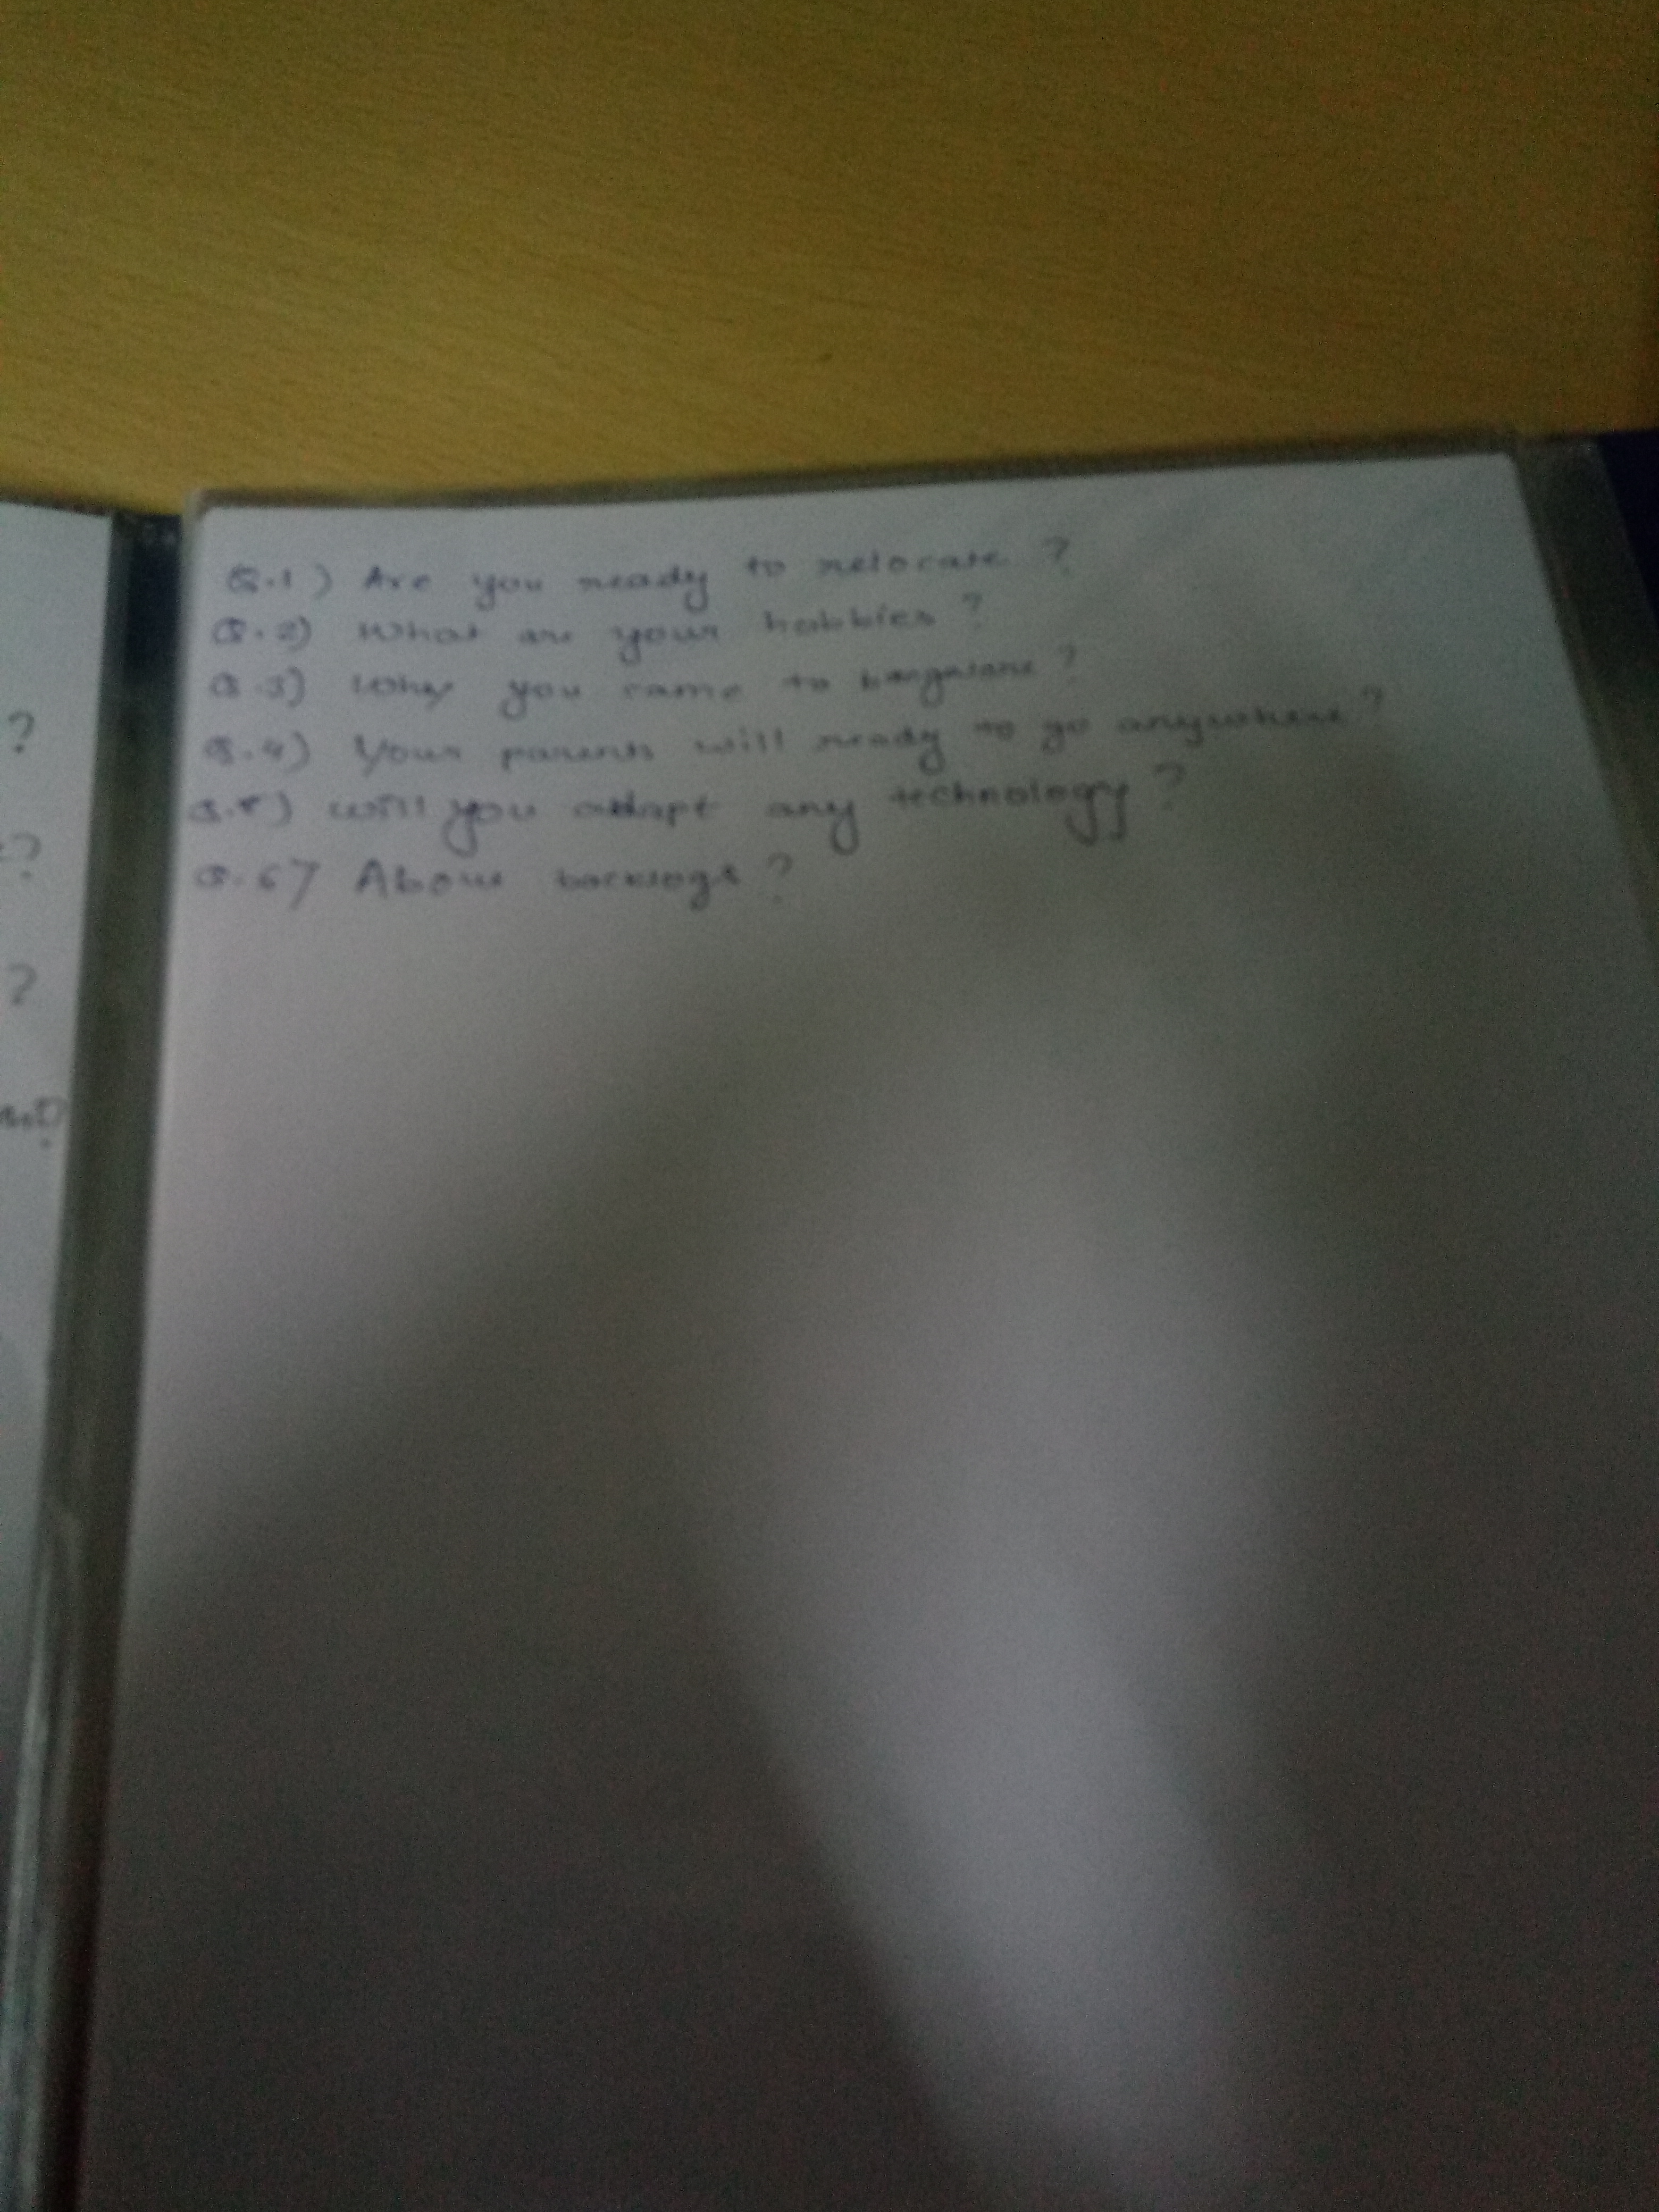 ?
?
?
Q.1) Are you ready to relocate ?
Q.2) What are your hobbies ?
Q.3) Why you came to bangalore ?
Q.4) Your parents will ready to go anywhere ?
Q.5) Will you adapt any technology ?
Q.6) About backlogs ?